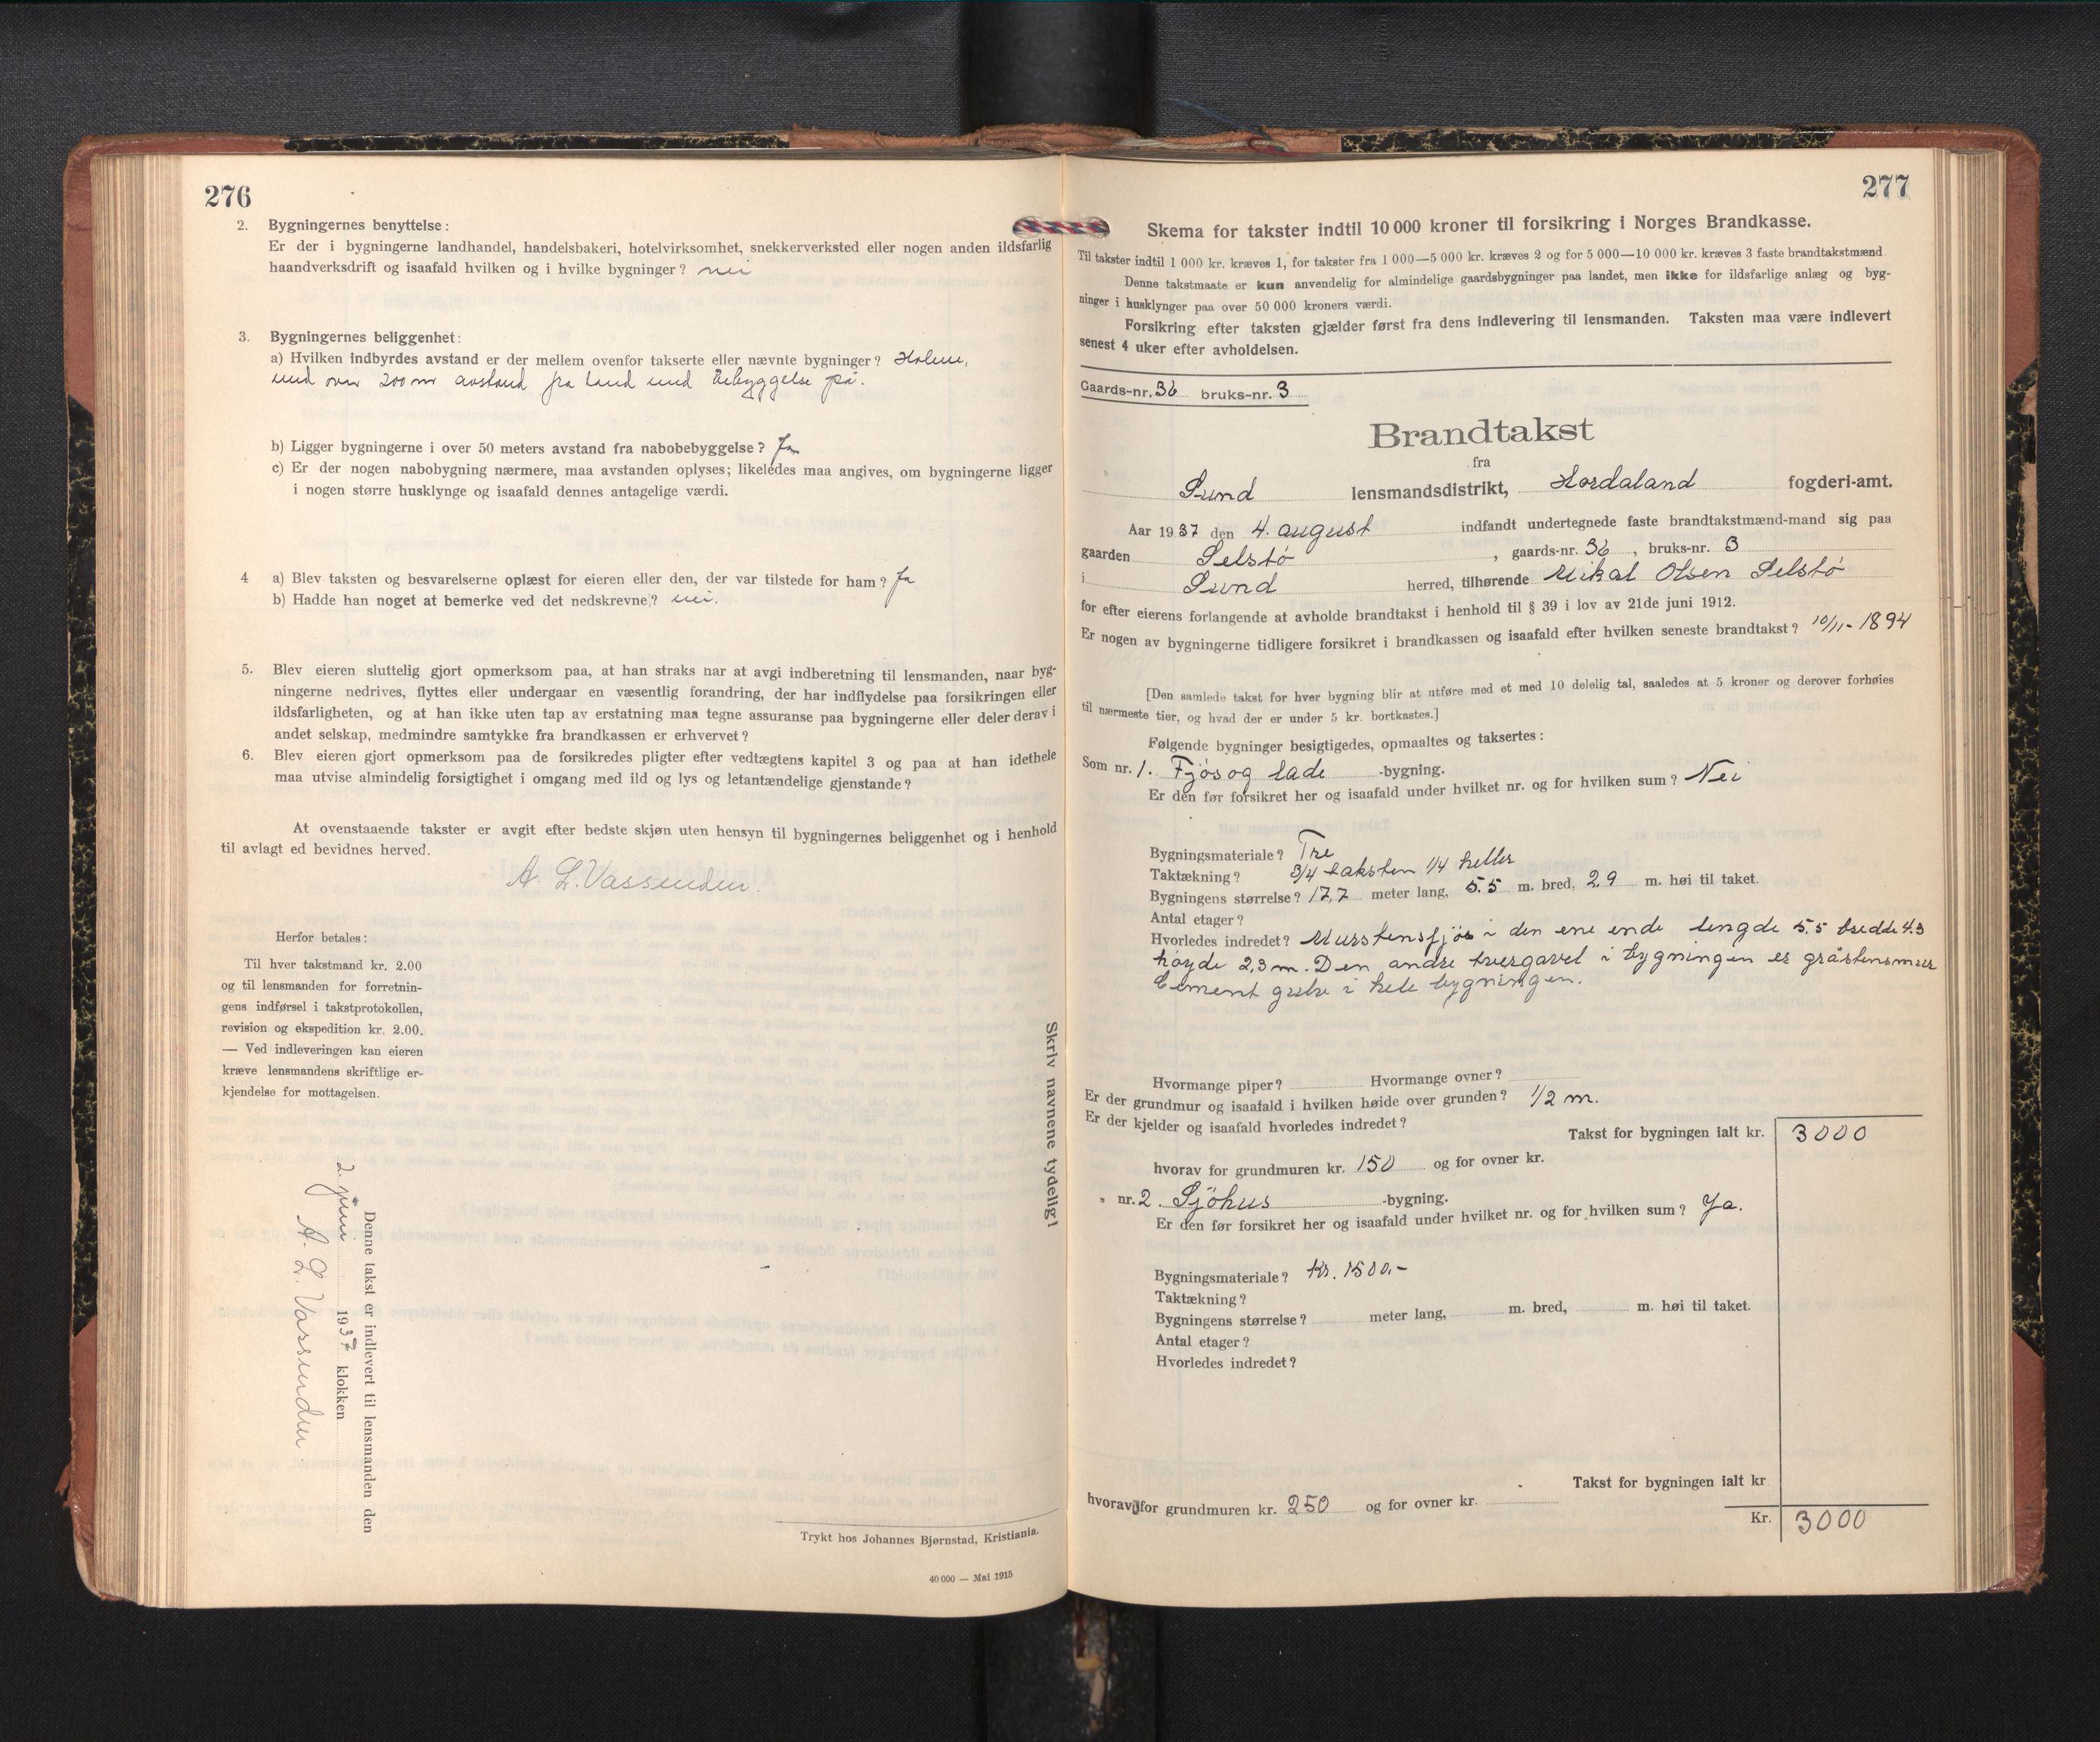 276
2. Bygningernes benyttelse:
Er der i bygningerne landhandel, handelsbakeri, hotelvirksomhet, snekkerverksted eller nogen anden ildsfarlig
haandverksdrift og isaafald hvilken og i hvilke bygninger? nei
3. Bygningernes beliggenhet:
a) Hvilken indbyrdes avstand er der mellem ovenfor takserte eller nævnte bygninger? Holme,
med over 200 m avstand fra land med bebyggelse på.
b) Ligger bygningerne i over 50 meters avstand fra nabobebyggelse? Ja
c) Er der nogen nabobygning nærmere, maa avstanden oplyses; likeledes maa angives, om bygningerne ligger
i nogen større husklynge og isaafald dennes antagelige værdi.
4 a) Blev taksten og besvarelserne oplæst for eieren eller den, der var tilstede for ham? Ja
b) Hadde han noget at bemerke ved det nedskrevne? nei.
5. Blev eieren sluttelig gjort opmerksom paa, at han straks nar at avgi indberetning til lensmanden, naar byg-
ningerne nedrives, flyttes eller undergaar en væsentlig forandring, der har indflydelse paa forsikringen eller
ildsfarligheten, og at han ikke uten tap av erstatning maa tegne assuranse paa bygningerne eller deler derav i
andet selskap, medmindre samtykke fra brandkassen er erhvervet?
6. Blev eieren gjort opmerksom paa de forsikredes pligter efter vedtægtens kapitel 3 og paa at han idethele
maa utvise almindelig forsigtighet i omgang med ild og lys og letantændelige gjenstande?
At ovenstaaende takster er avgit efter bedste skjøn uten hensyn til bygningernes beliggenhet og i henhold
til avlagt ed bevidnes herved.
A. L. Vassenden.
Herfor betales:
Til hver takstmand kr. 2.00
og til lensmanden for forretnin-
gens indførsel i takstprotokollen,
revision og ekspedition kr. 2.00.
— Ved indleveringen kan eieren
kræve lensmandens skriftlige er-
kjendelse for mottagelsen.
Skriv navnene tydelig!
Denne takst er indlevert til lensmanden den
2. juni 1937 klokken
A. L. Vassenden
Trykt hos Johannes Bjørnstad, Kristiania.
40 000 — Mai 1915
277
Skema for takster indtil 10 000 kroner til forsikring i Norges Brandkasse.
Til takster indtil 1 000 kr. kræves 1, for takster fra 1 000—5 000 kr. kræves 2 og for 5 000—10 000 kr. kræves 3 faste brandtakstmænd
Denne takstmaate er kun anvendelig for almindelige gaardsbygninger paa landet, men ikke for ildsfarlige anlæg og byg-
ninger i husklynger paa over 50 000 kroners værdi.
Forsikring efter taksten gjælder først fra dens indlevering til lensmanden. Taksten maa være indlevert
senest 4 uker efter avholdelsen.
Gaards-nr. 36 bruks-nr. 3
Brandtakst
fra
Sund lensmandsdistrikt, Hordaland fogderi-amt.
Aar 1937 den 4. august indfandt undertegnede faste brandtakstmænd-mand sig paa
gaarden Selstö, gaards-nr. 36, bruks-nr. 3
i Sund herred, tilhørende Mikal Olsen Selstö
for efter eierens forlangende at avholde brandtakst i henhold til § 39 i lov av 21de juni 1912.
Er nogen av bygningerne tidligere forsikret i brandkassen og isaafald efter hvilken seneste brandtakst? 10/11- 1894
[Den samlede takst for hver bygning blir at utføre med et med 10 delelig tal, saaledes at 5 kroner og derover forhøies
til nærmeste tier, og hvad der er under 5 kr. bortkastes.]
Følgende bygninger besigtigedes, opmaaltes og taksertes:
Som nr. 1. Fjös og lade -bygning.
Er den før forsikret her og isaafald under hvilket nr. og for hvilken sum? Nei
Bygningsmateriale? Tre
Taktækning? 3/4 taksten 1/4 heller
Bygningens størrelse? 17,7 meter lang, 5.5 m. bred, 2,9 m. høi til taket.
Antal etager?
Hvorledes indredet? Murstensfjös i den ene ende lengde 5,5 bredde 4.3
høyde 2,3 m. Den andre tvergavel i bygningen er gråstensmur
Cement grube i hele bygningen.
Hvormange piper? Hvormange ovner?
Er der grundmur og isaafald i hvilken høide over grunden? 1/2 m.
Er der kjelder og isaafald hvorledes indredet?
Takst for bygningen ialt kr. 3000
hvorav for grundmuren kr. 150 og for ovner kr.
" nr. 2. Sjöhus -bygning.
Er den før forsikret her og isaafald under hvilket nr. og for hvilken sum? Ja.
Bygningsmateriale? Kr. 1500,-
Taktækning?
Bygningens størrelse? meter lang, m. bred, m. høi til taket.
Antal etager?
Hvorledes indredet?
Takst for bygningen ialt kr
hvorav for grundmuren kr. 250 og for ovner kr.
Kr. 3000